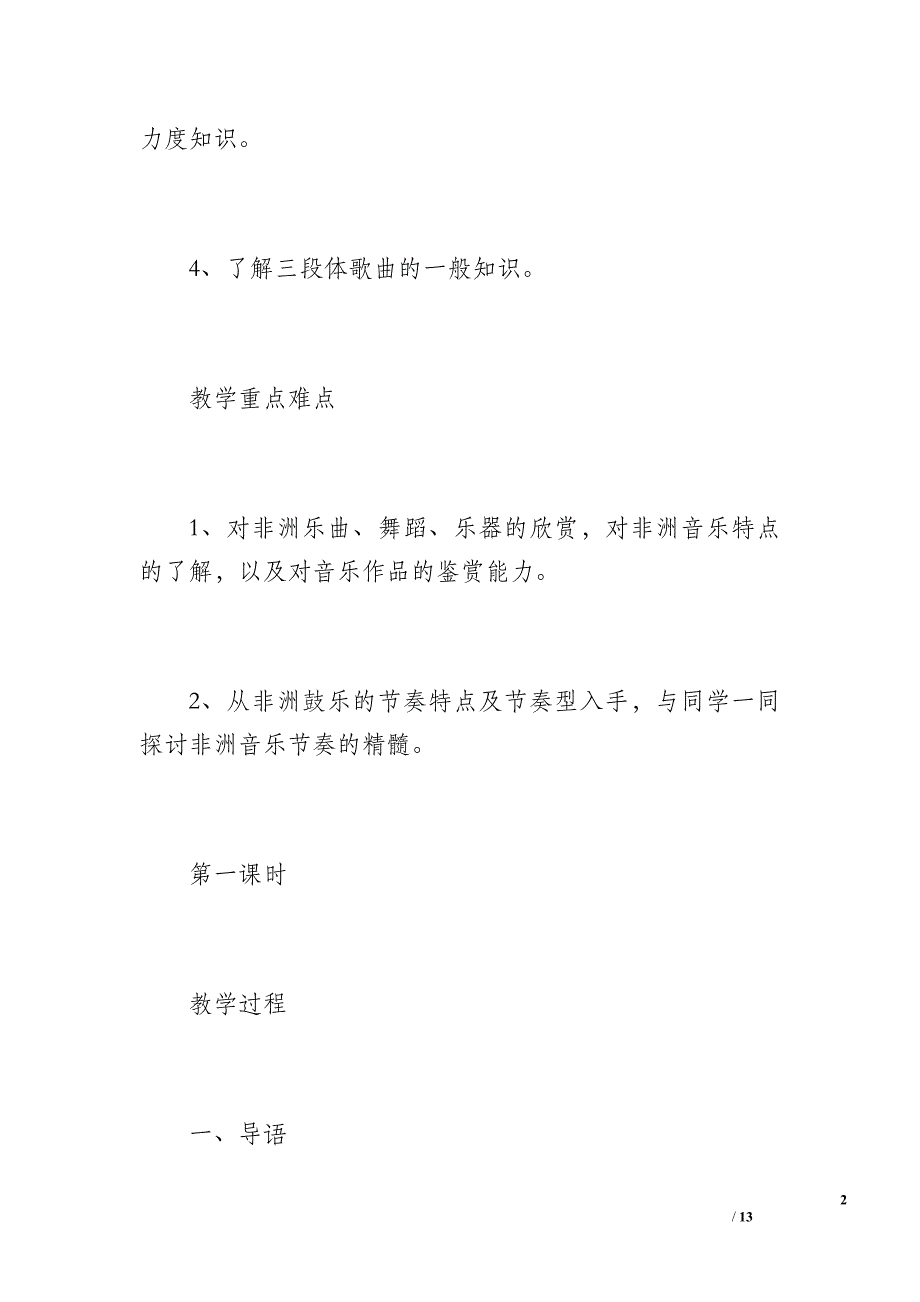 力度知识。
4、了解三段体歌曲的一般知识。
教学重点难点
1、对非洲乐曲、舞蹈、乐器的欣赏，对非洲音乐特点
的了解，以及对音乐作品的鉴赏能力。
2、从非洲鼓乐的节奏特点及节奏型入手，与同学一同
探讨非洲音乐节奏的精髓。
第一课时
教学过程
一、导语
2
/ 13